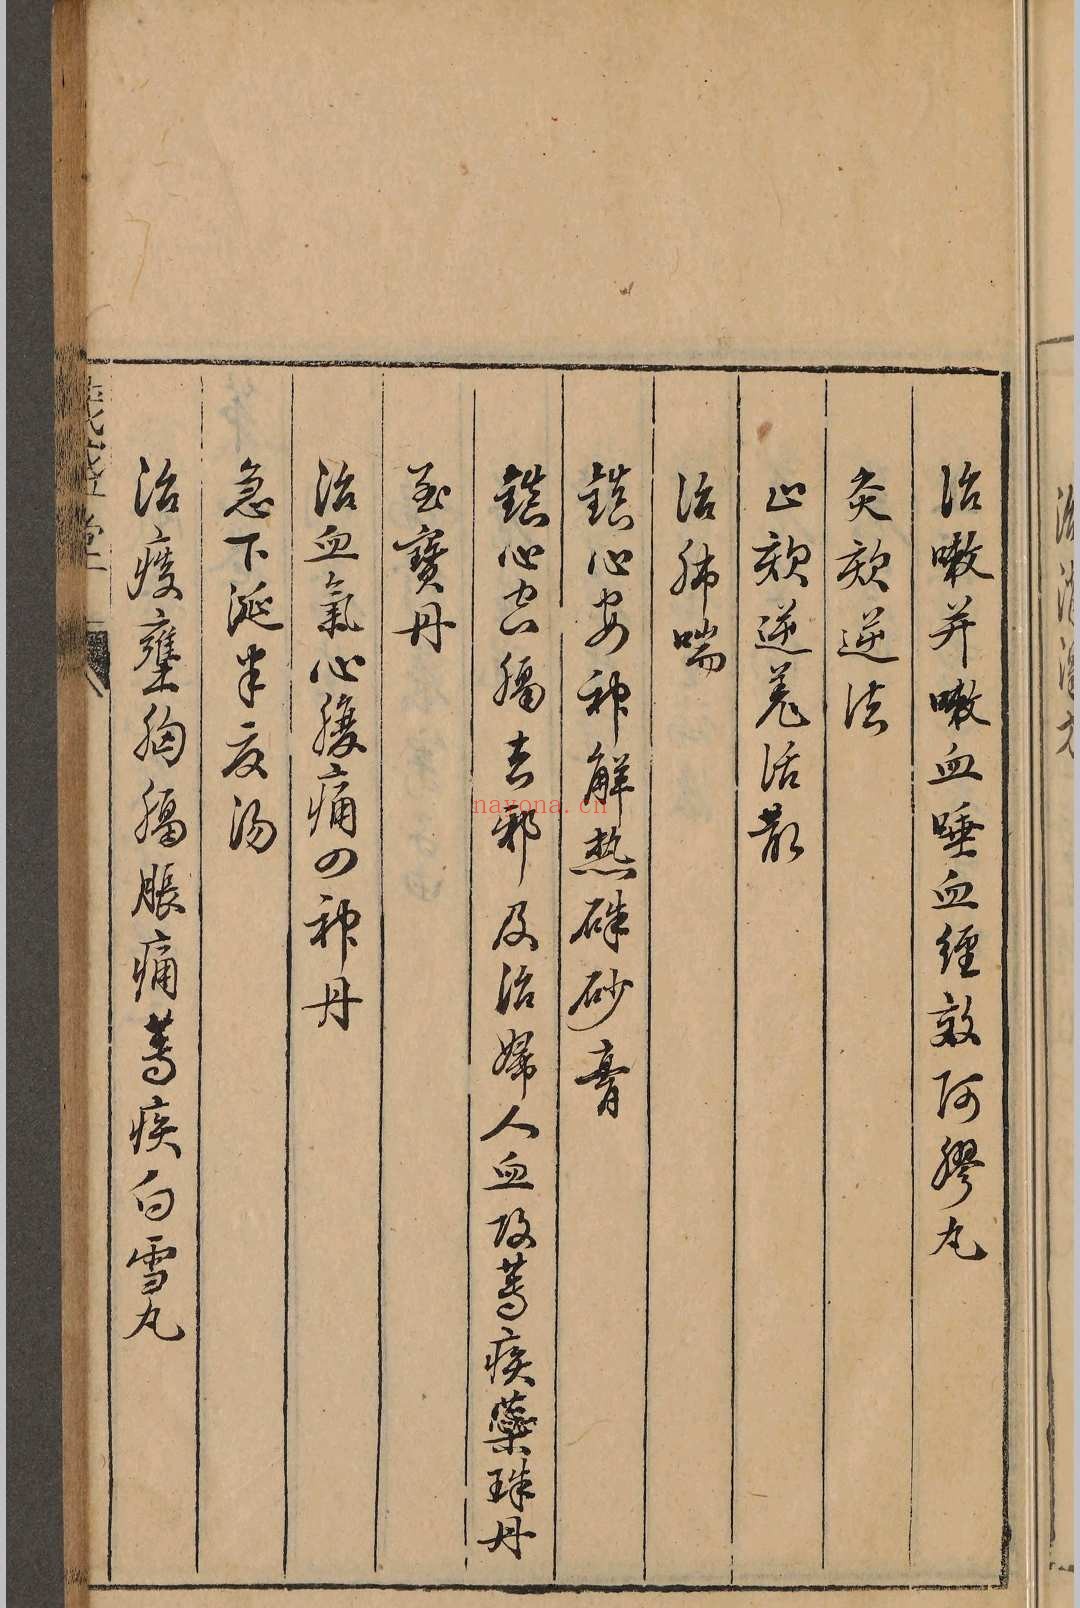 治嗽并嗽血唾血經效阿膠丸
灸欬逆法
止欬逆羌活散
治肺喘
鎮心安神解熱硃砂膏
鎮心空膈去邪及治婦人血攻等疾蘂珠丹
至寶丹
治血氣心腹痛四神丹
急下涎半夏湯
治痰壅胸膈脹痛等疾白雪丸
nayona.cn